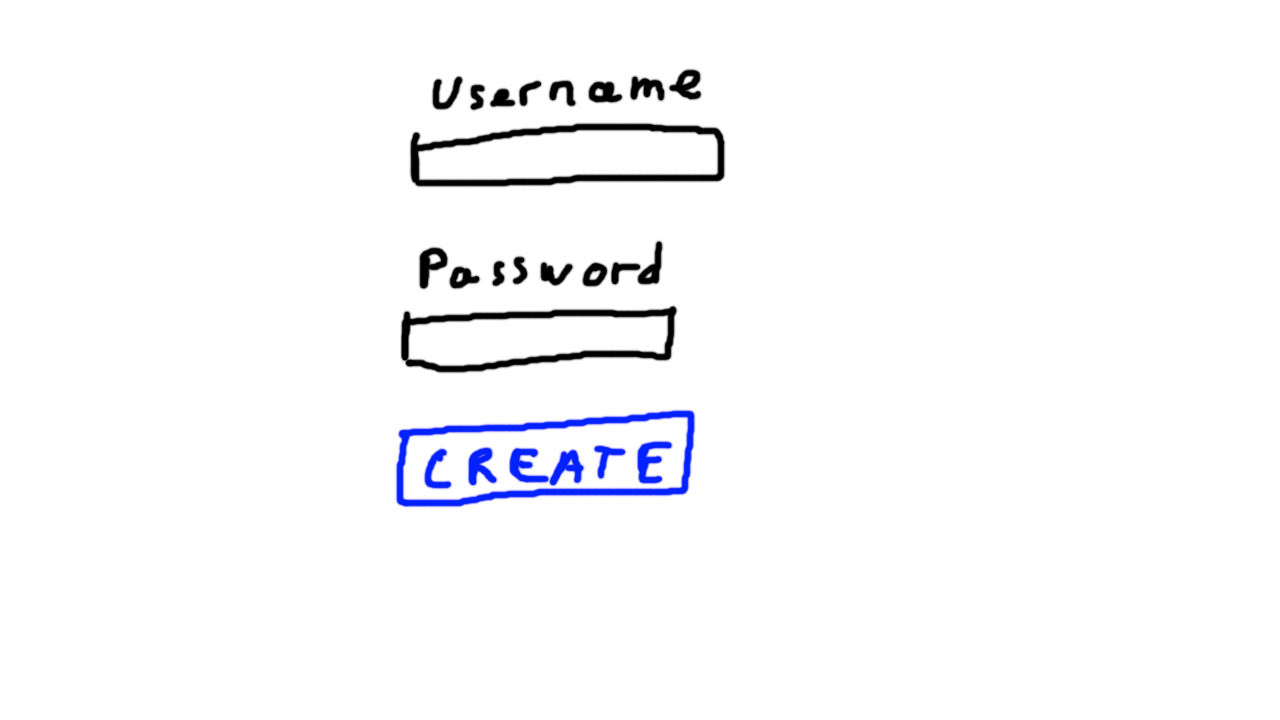 Username
Password
CREATE